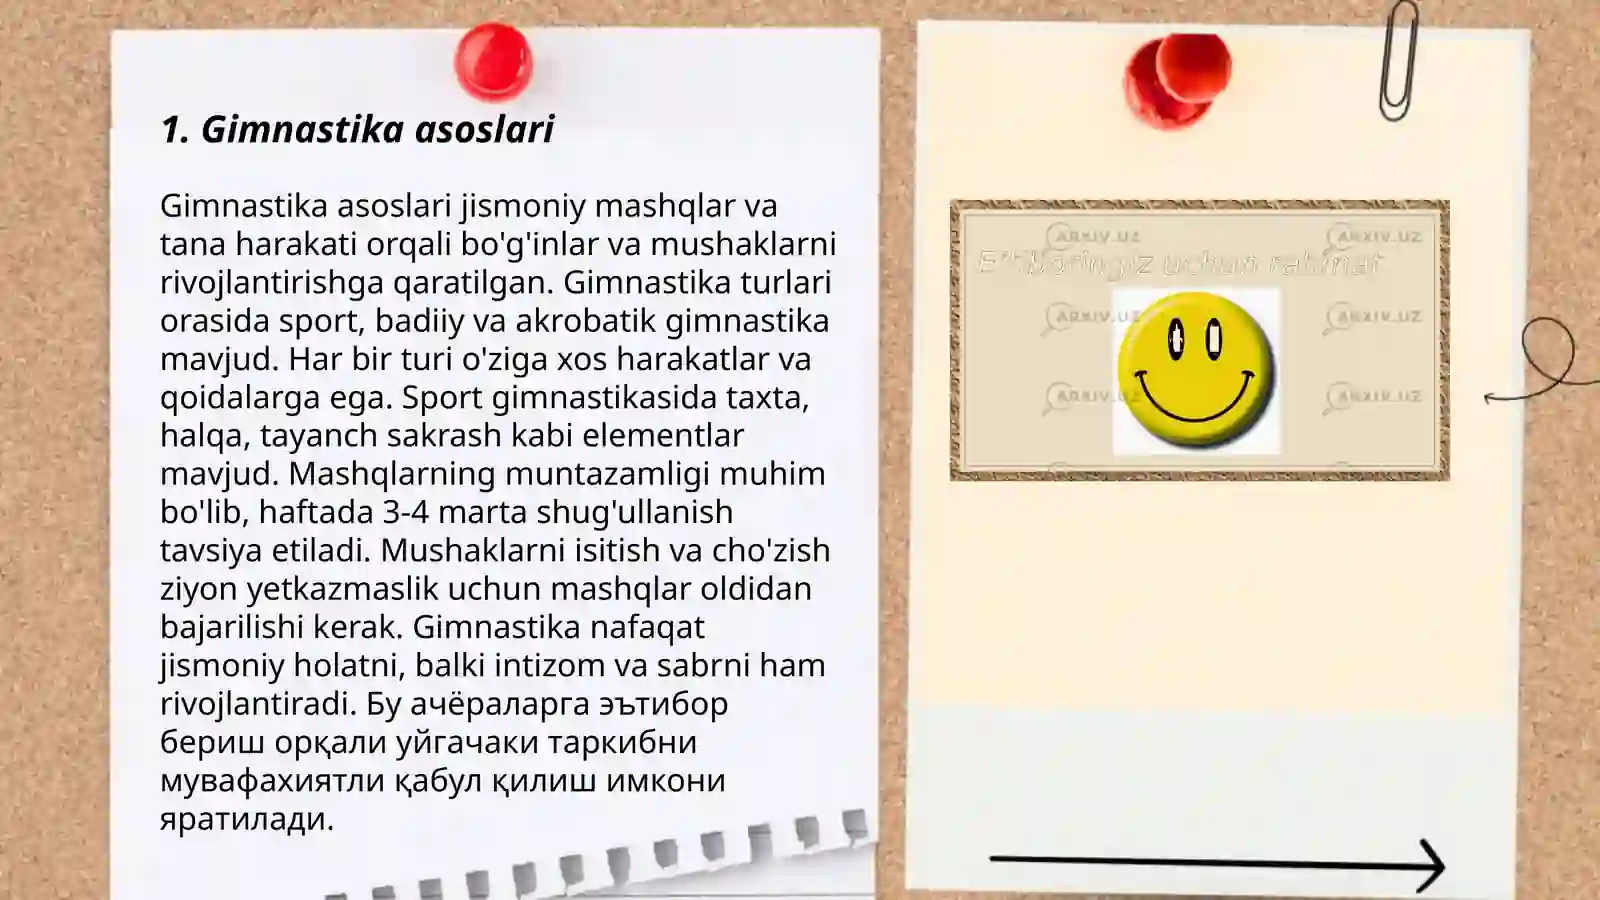 1. Gimnastika asoslari
Gimnastika asoslari jismoniy mashqlar va
tana harakati orqali bo'g'inlar va mushaklarni
rivojlantirishga qaratilgan. Gimnastika turlari
orasida sport, badiiy va akrobatik gimnastika
mavjud. Har bir turi o'ziga xos harakatlar va
qoidalarga ega. Sport gimnastikasida taxta,
halqa, tayanch sakrash kabi elementlar
mavjud. Mashqlarning muntazamligi muhim
bo'lib, haftada 3-4 marta shug'ullanish
tavsiya etiladi. Mushaklarni isitish va cho'zish
ziyon yetkazmaslik uchun mashqlar oldidan
bajarilishi kerak. Gimnastika nafaqat
jismoniy holatni, balki intizom va sabrni ham
rivojlantiradi. Бу ачёраларга эътибор
бериш орқали уйгачаки таркибни
мувафахиятли қабул қилиш имкони
яратилади.
ARXIV.UZ ARXIV.UZ
E'tiboringiz uchun rahmat
ARXIV.UZ ARXIV.UZ
ARXIV.UZ ARXIV.UZ